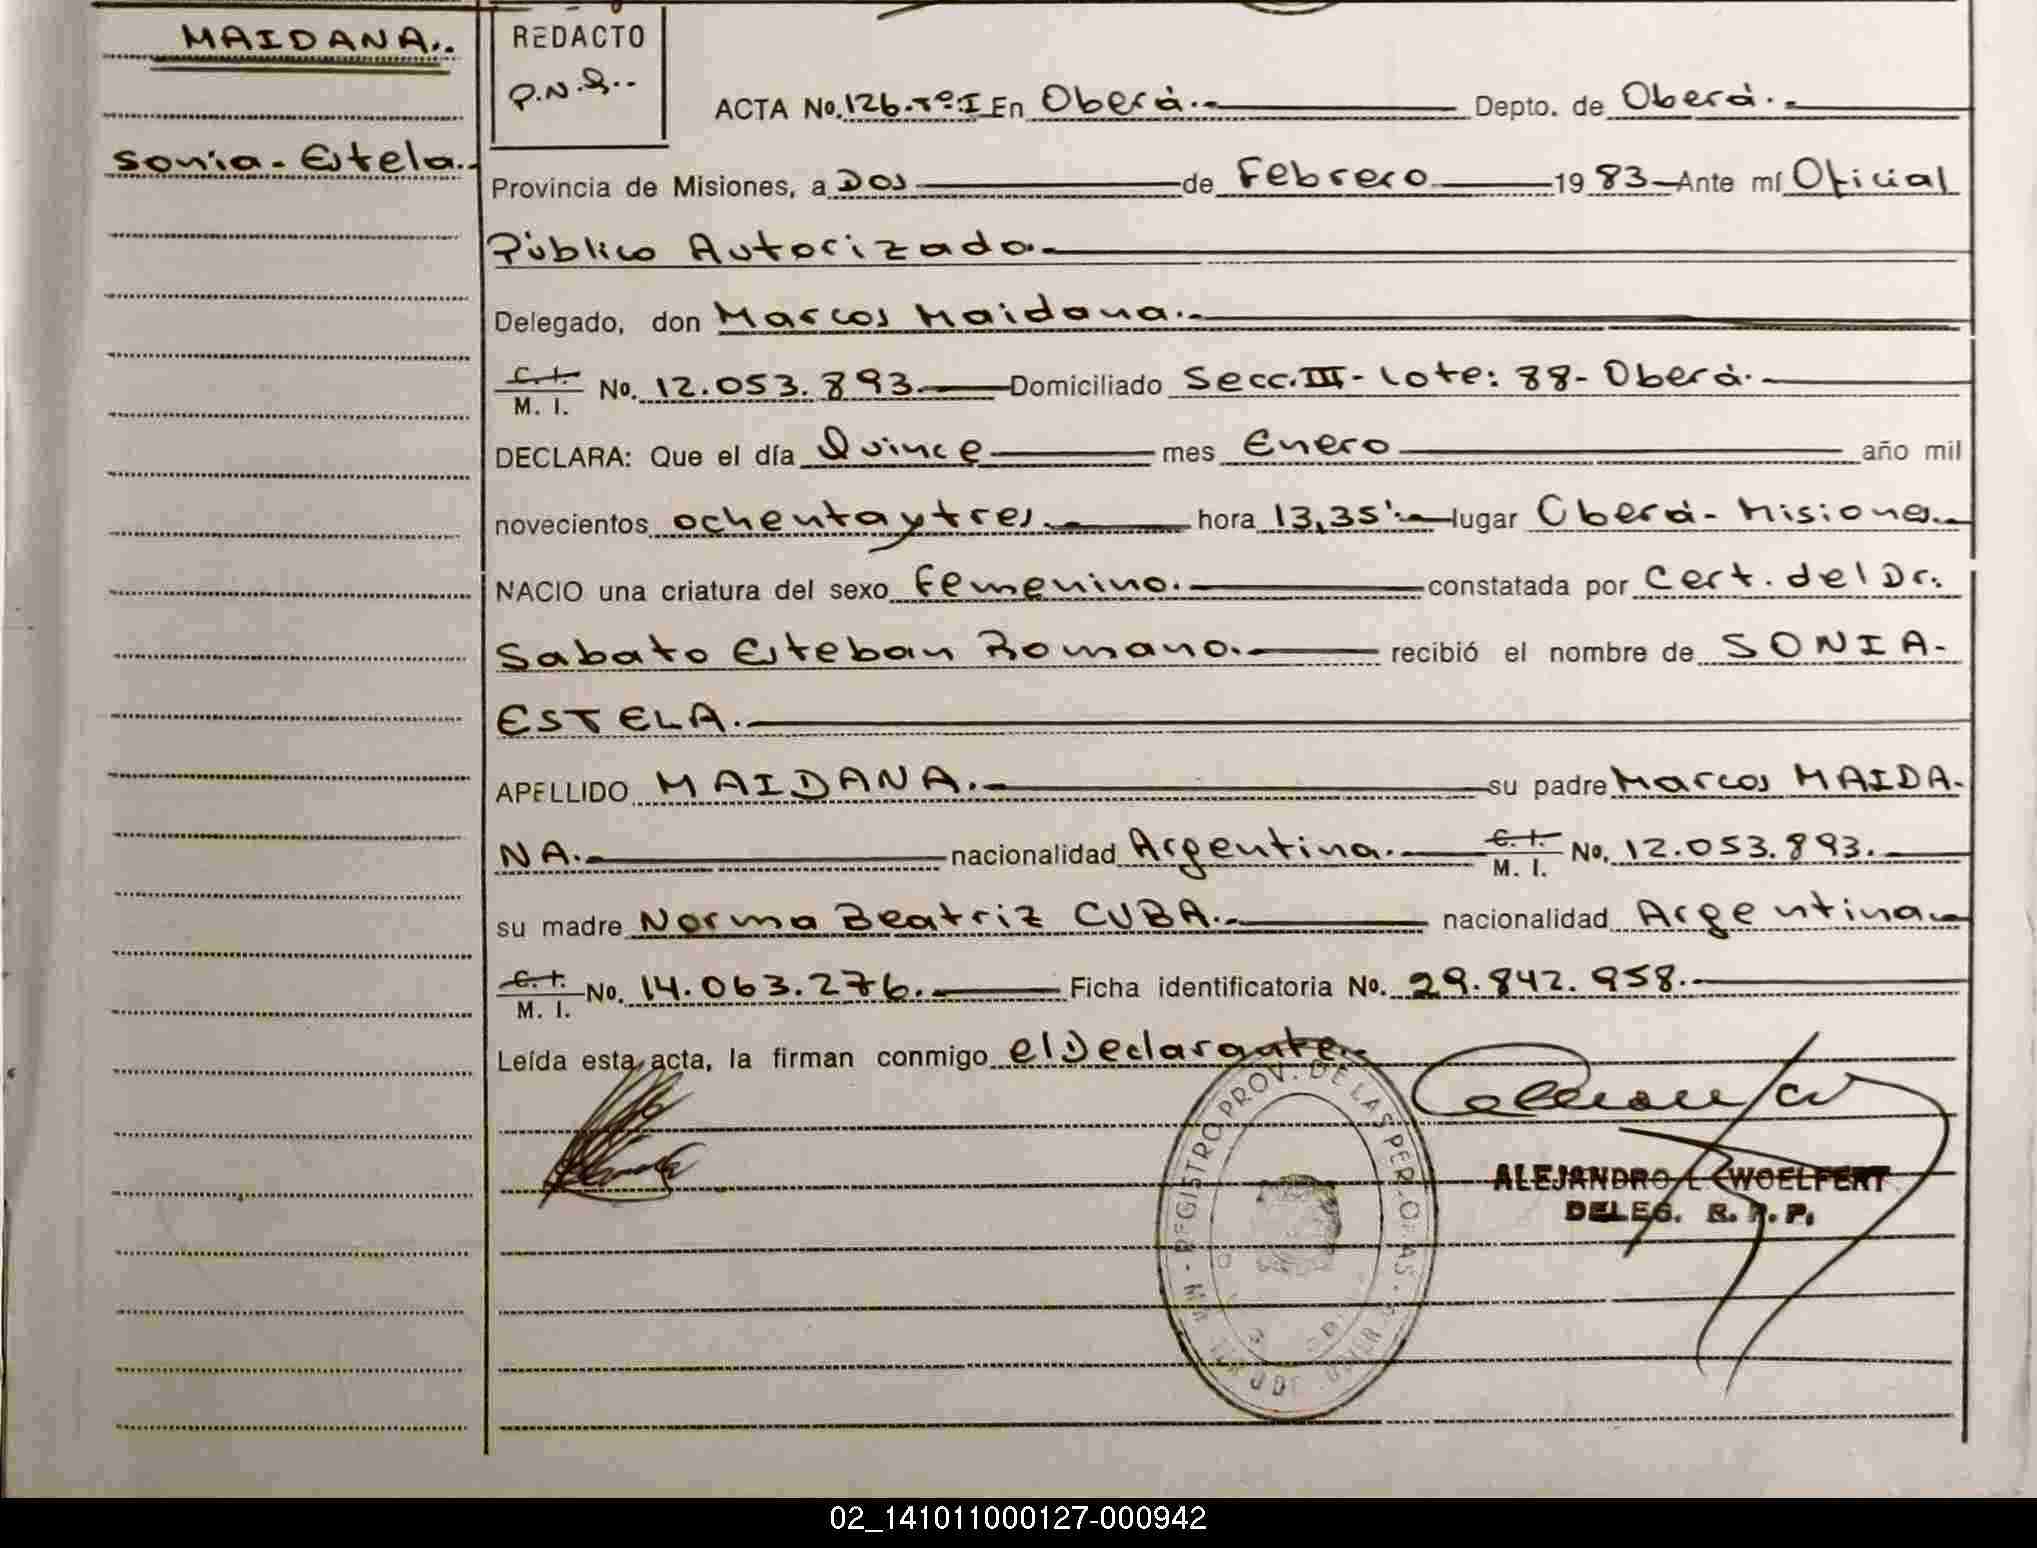 MAIDANA..
Sonia-Estela.-
REDACTO
P.N.G..
ACTA No. 126-Tº-I En Oberá.- Depto. de Oberá.-
Provincia de Misiones, a Dos de Febrero 1983 Ante mí Oficial
Público Autorizado.-
Delegado, don Marcos Maidana.-
C.I. M. I. No. 12.053.893.- Domiciliado Secc.III- Lote: 88- Oberá.-
DECLARA: Que el día Quince mes Enero año mil
novecientos ochentaytres.- hora 13,35'.- lugar Oberá- Misiones.-
NACIO una criatura del sexo Femenino.- constatada por Cert. del Dr.
Sabato Esteban Romano.- recibió el nombre de SONIA-
ESTELA.-
APELLIDO MAIDANA.- su padre Marcos MAIDA-
NA.- nacionalidad Argentina.- C.I. M. I. No. 12.053.893.-
su madre Norma Beatriz CUBA.- nacionalidad Argentina.-
C.I. M. I. No. 14.063.276.- Ficha identificatoria No. 29.842.958.-
Leída esta acta, la firman conmigo el Declarante.-
REGISTRO PROV. DE LAS PERSONAS
ALEJANDRO L. WOELFERT
DELEG. R. P. P.
02_141011000127-000942